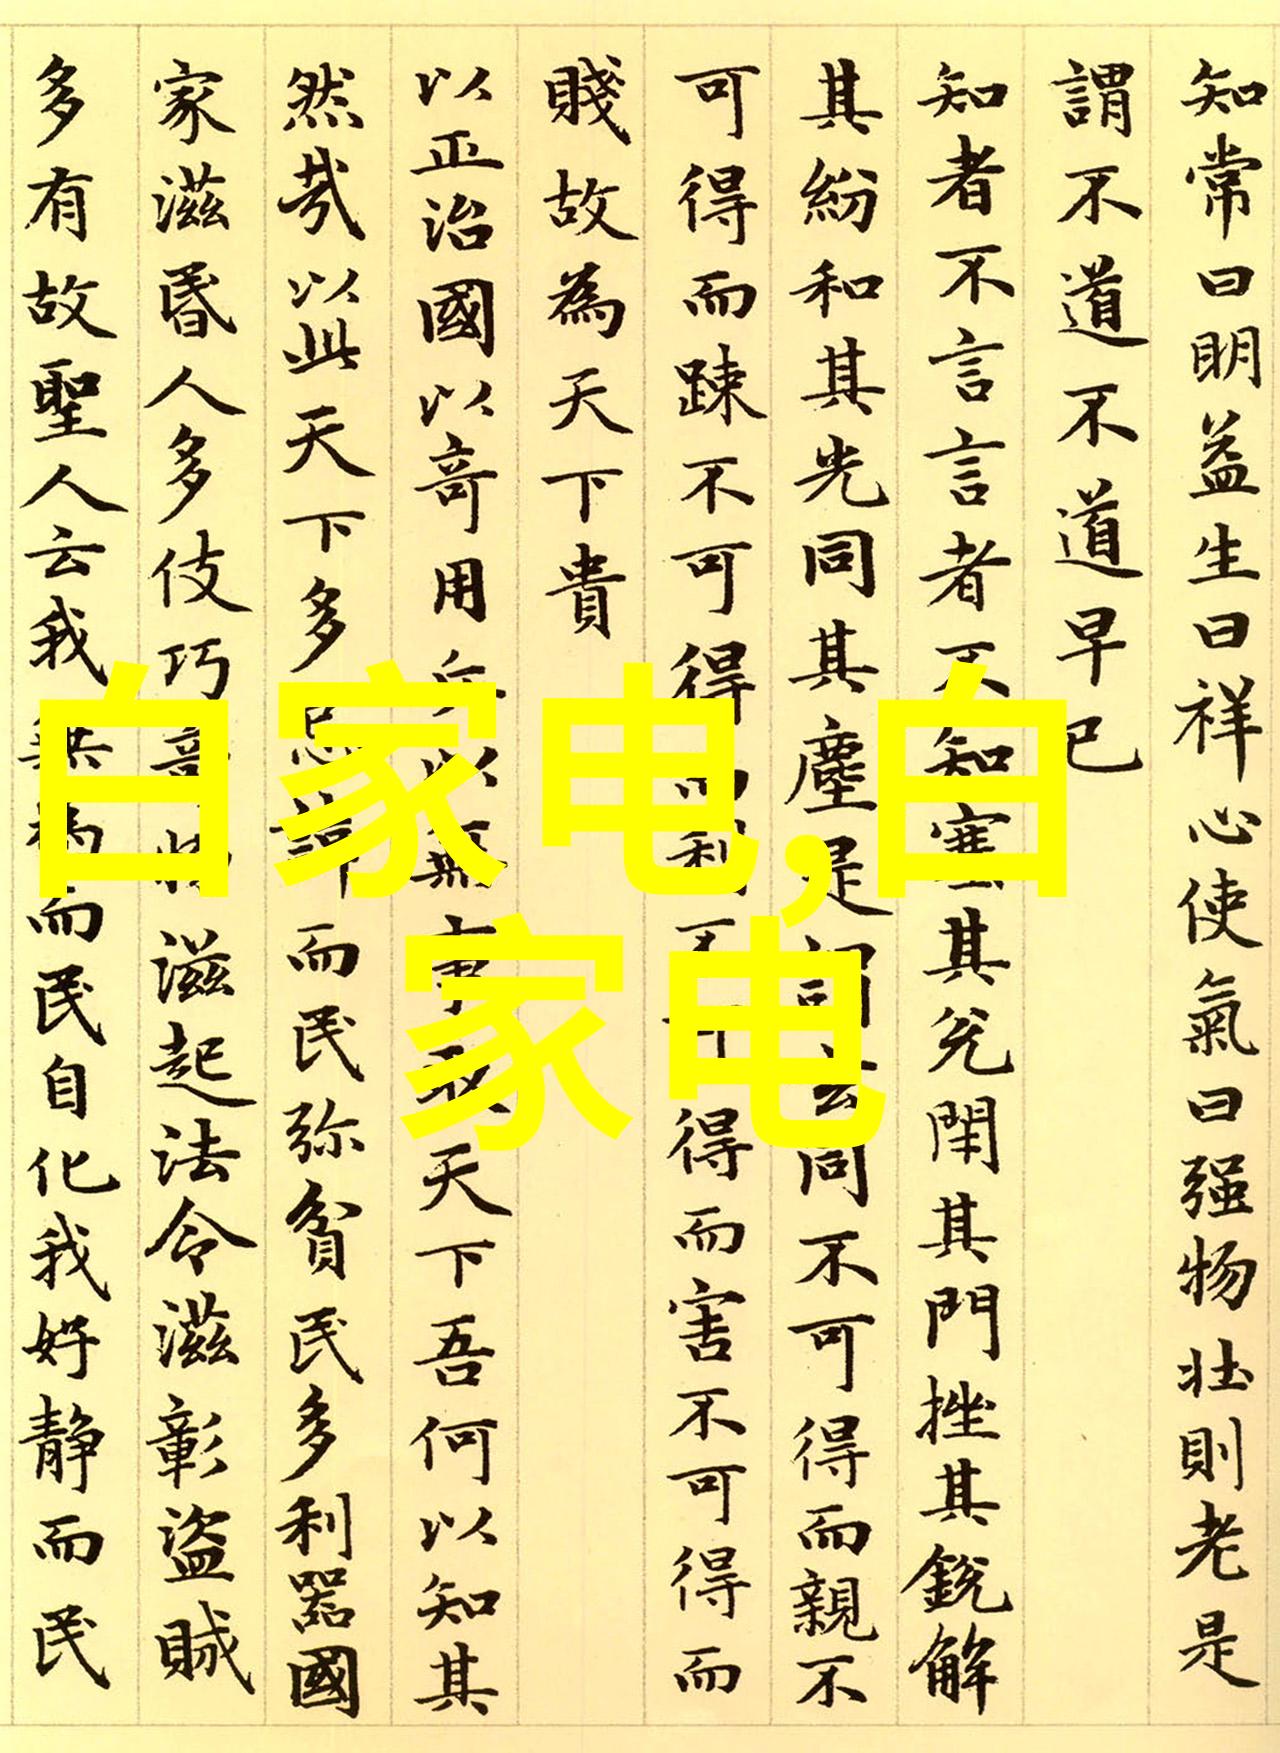 知常曰明益生曰祥心使氣曰强物壯則老是
謂不道不道早已
知者不言言者不知塞其兌閉其門挫其銳解
其紛和其光同其塵是謂玄同不可得而親不
可得而踈不可得而利不可得而害不可得而
賤故為天下貴
以正治國以奇用兵以無事取天下吾何以知其
然哉以此天下多忌諱而民弥貧民多利器國
家滋昏人多伎巧奇物滋起法令滋彰盜賊
多有故聖人云我無為而民自化我好静而民
白家电,白
家电